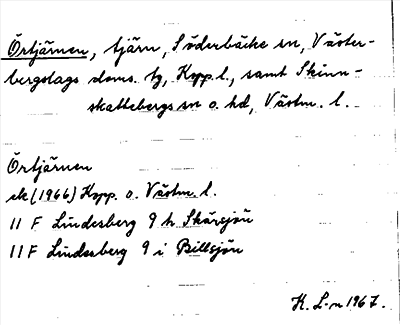 Örtjärnen, tjärn, Söderbäcke sn, Väster-
bergslags doms. tg, Kopp. l., samt Skinn-
skattebergs sn o. hd, Västm. l.
Örtjärnen
ek (1966) Kopp. o. Västm. l.
11 F Lindesberg 9 h Skärsjön
11 F Lindesberg 9 i Billsjön
K. L-n 1967.